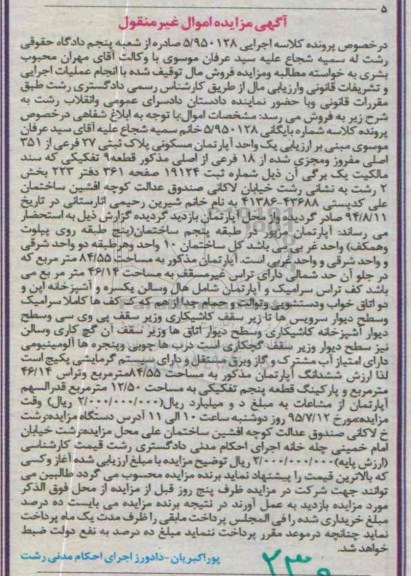 ۵
آگهی مزایده اموال غیرمنقول
درخصوص پرونده کلاسه اجرایی ۵/۹۵۰۱۲۸ صادره از شعبه پنجم دادگاه حقوقی
رشت له سمیه شجاع علیه سید عرفان موسوی با وکالت آقای مهران محبوب
بشری به خواسته مطالبه ومزایده فروش مال توقیف شده با انجام عملیات اجرایی
و تشریفات قانونی وارزیابی مال از طریق کارشناس رسمی دادگستری رشت طبق
مقررات قانونی وبا حضور نماینده دادستان دادسرای عمومی وانقلاب رشت به
شرح زیر به فروش می رسد: مشخصات اموال:با توجه به ابلاغ شفاهی درخصوص
پرونده کلاسه شماره بایگانی ۵/۹۵۰۱۲۸ خانم سمیه شجاع علیه آقای سید عرفان
موسوی مبنی بر ارزیابی یک واحد آپارتمان مسکونی پلاک ثبتی ۲۷ فرعی از ۳۵۱
اصلی مفروز ومجزی شده از ۱۸ فرعی از اصلی مذکور قطعه۹ تفکیکی که سند
مالکیت یک برگی آن ذیل شماره ثبت ۱۹۱۲۴ صفحه ۳۶۱ دفتر ۲۲۳ بخش
۲ رشت به نشانی رشت خیابان لاکانی صندوق عدالت کوچه افشین ساختمان
علی کدپستی ۴۳۶۸۸-۴۱۳۸۶ به نام خانم شیرین رحیمی اتارستانی در تاریخ
۹۴/۸/۱۱ صادر گردیده واز محل آپارتمان بازدید گردیده گزارش ذیل به استحضار
می رساند: آپارتمان مزبور در طبقه پنجم ساختمان(پنج طبقه روی پیلوت
وهمکف) واحد غربی می باشد کل ساختمان ۱۰ واحد وهرطبقه دو واحد شرقی
و واحد شرقی و واحد غربی است. آپارتمان مذکور به مساحت ۸۴/۵۵ متر مربع که
در جلو آن حد شمالی دارای تراس غیرمسقف به مساحت ۴۶/۱۴ متر مر بع می
باشد کف تراس سرامیک و آپارتمان شامل هال وسالن یکسره و آشپزخانه اپن و
دو اتاق خواب ودستشویی وتوالت و حمام جدا از هم که کف ها کاملا سرامیک
وسطح دیوار سرویس ها تا زیر سقف کاشیکاری وزیر سقف پی وی سی وسطح
دیوار آشپزخانه کاشیکاری وسطح دیوار اتاق ها وزیر سقف آن گچ کاری وسالن
نیز سطح دیوار وزیر سقف گچکاری است درب ها چوبی وپنجره ها آلومینیومی
دارای امتیاز آب مشترک و گاز وبرق مستقل و دارای سیستم گرمایشی پکیج است
لذا ارزش ششدانگ آپارتمان مذکور به مساحت ۸۴/۵۵مترمربع وتراس ۴۶/۱۴
مترمربع و پارکینگ قطعه پنجم تفکیکی به مساحت ۱۲/۵۰ مترمربع قدرالسهم
آپارتمان از مشاعات به مبلغ د و میلیارد ریال(۲/۰۰۰/۰۰۰/۰۰۰ ریال) وقت
مزایده:مورخ ۹۵/۷/۱۲ روز دوشنبه ساعت ۱۰ الی ۱۱ آدرس دستگاه مزایده:رشت
خ لاکانی صندوق عدالت کوچه افشین ساختمان علی محل مزایده:رشت خیابان
امام خمینی چله خانه اجرای احکام مدنی دادگستری رشت قیمت کارشناسی
(ارزش پایه)۲/۰۰۰/۰۰۰/۰۰۰ ریال توضیح مزایده با مبلغ ارزیابی شده آغاز وکسی
که بالاترین قیمت را پیشنهاد نماید برنده مزایده محسوب می گردد طالبین می
توانند جهت شرکت در مزایده ظرف پنج روز قبل از مزایده از محل فوق الذکر
مورد مزایده بازدید به عمل آورند در نتیجه برنده مزایده می بایست ده درصد
مبلغ خریداری شده را فی المجلس پرداخت مابقی را ظرف مدت یک ماه پرداخت
نماید چنانچه درموعد مقرر پرداخت ننماید مبلغ ده درصد به نفع دولت ضبط
خواهد شد.
پوراکبریان -دادورز اجرای احکام مدنی رشت